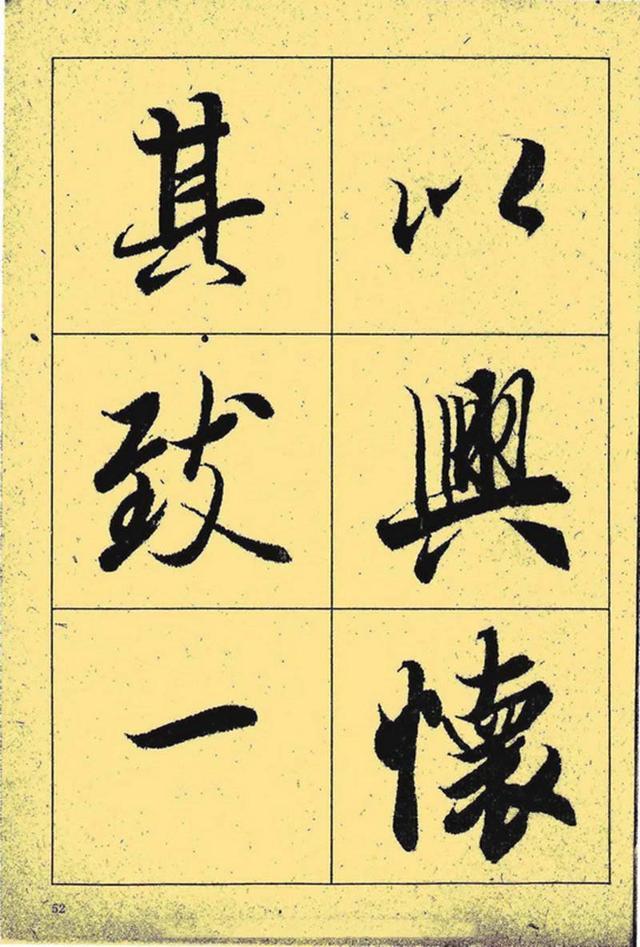 以興懷
其致一
52